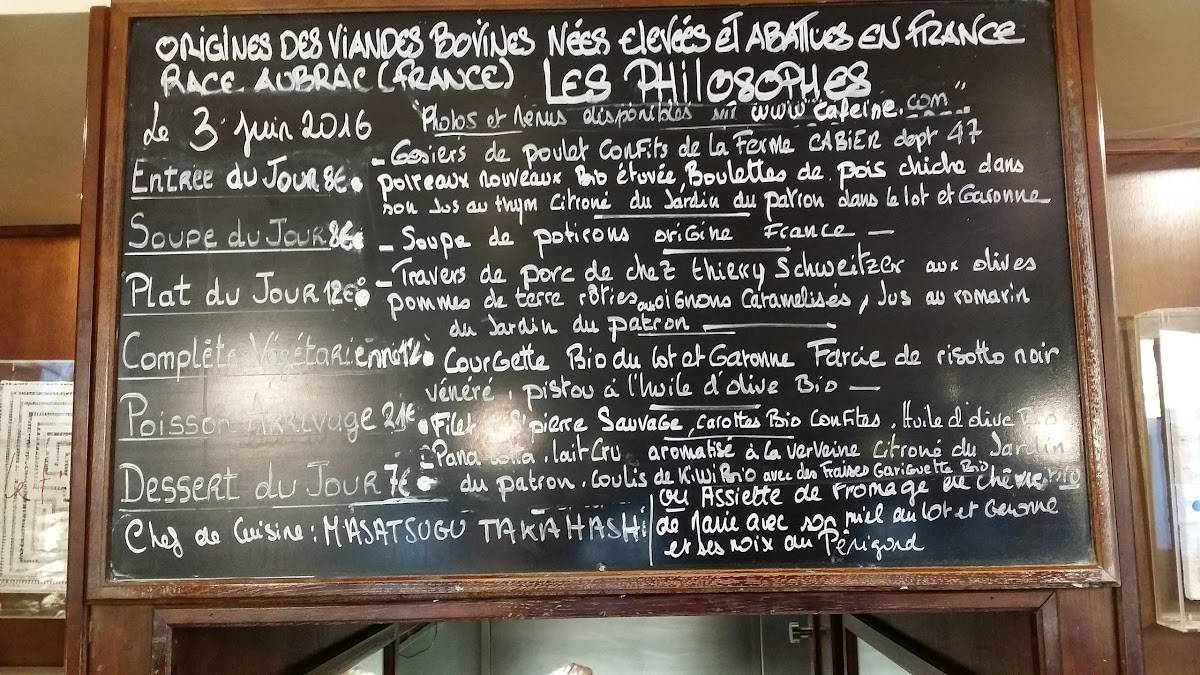 ORIGINES DES VIANDES BOVINES NÉES ELEVÉES ET ABATTUES EN FRANCE
RACE AUBRAC (FRANCE) LES PHILOSOPHES
Le 3 Juin 2016
"Photos et Menus disponibles sur www.cafeine.com"
Entrée du Jour 8€
- Gesiers de poulet confits de la Ferme CABIER dept 47
poireaux nouveaux Bio étuvée, Boulettes de pois chiche dans
son Jus au thym Citroné du Jardin du patron dans le lot et Garonne
Soupe du Jour 8€
- Soupe de potirons origine France -
Plat du Jour 12€
- Travers de porc de chez thierry Schweitzer aux olives
pommes de terre rôties aux oignons Caramelisés, Jus au romarin
du Jardin du patron
Complète Végétarienne 12
Courgette Bio du lot et Garonne Farcie de risotto noir
vénéré, pistou à l'huile d'olive Bio -
Poisson Arrivage 21€
Filet St pierre Sauvage, carottes Bio Confites, Huile d'olive Bio
Dessert du Jour 7€
- Pana cotta, lait Cru aromatisé à la verveine Citroné du Jardin
du patron, Coulis de Kiwi Bio avec des Fraises Gariguette Bio
ou Assiette de Fromage de chèvre Bio
de Marie avec son miel du Lot et Garonne
et ses noix du Périgord
Chef de Cuisine : MASATSUGU TAKAHASHI